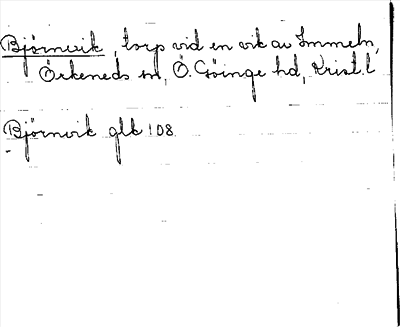 Bjørnvik, torp vid en vik av Immeln,
Örkeneds sn, Ö. Göinge hd, Krist. l
Bjørnvik glk 108